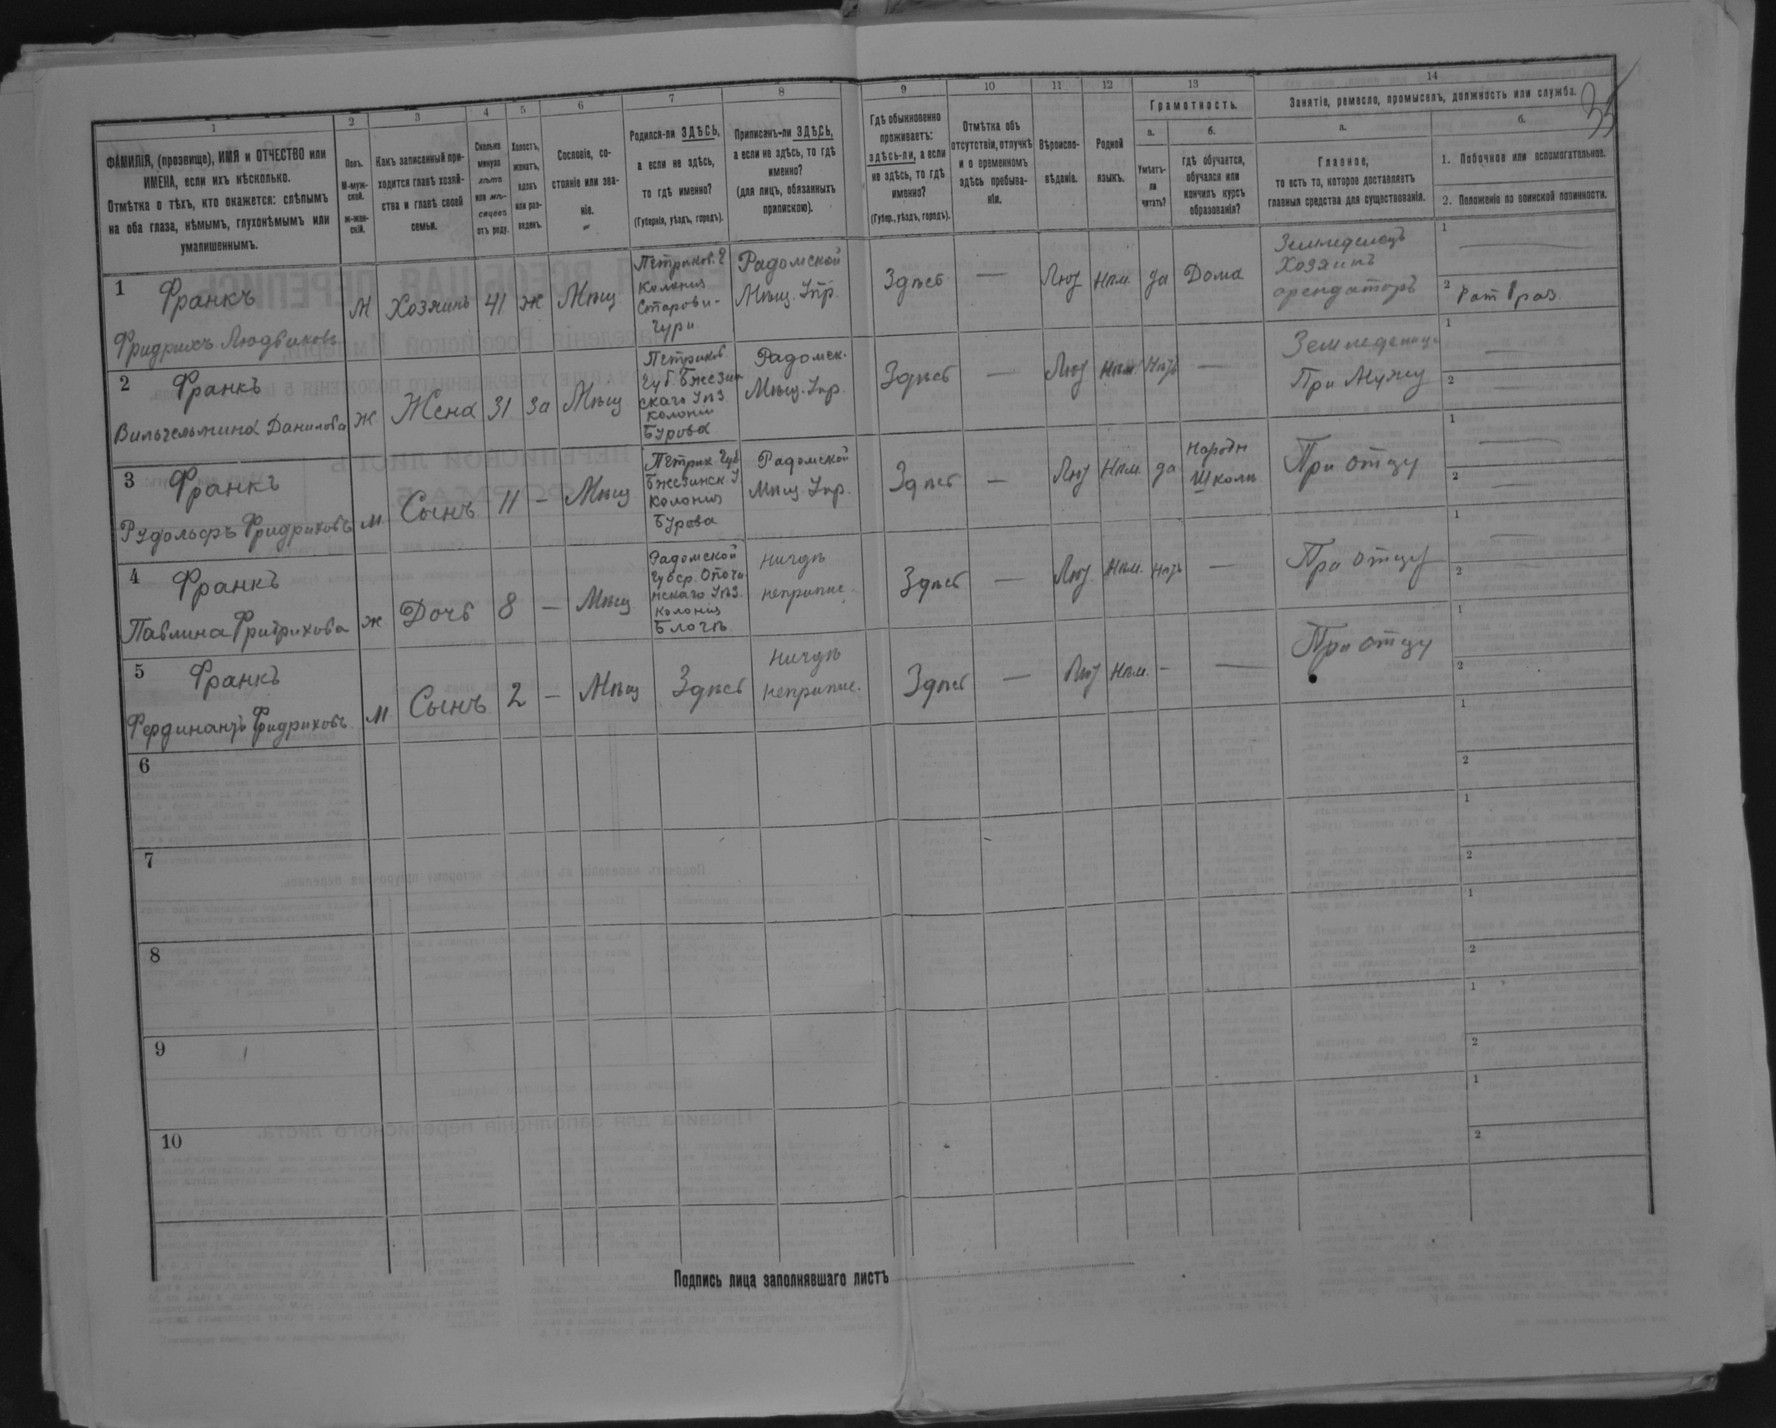 1
2
3
4
5
6
7
8
9
10
11
12
13
14
35
ФАМИЛІЯ, (прозвище), ИМЯ и ОТЧЕСТВО или
ИМЕНА, если ихъ нѣсколько.
Отмѣтка о тѣхъ, кто окажется: слѣпымъ
на оба глаза, нѣмымъ, глухонѣмымъ или
умалишеннымъ.
Полъ.
М-муж-
ской.
Ж-жен-
скій.
Какъ записанный при-
ходится главѣ хозяй-
ства и главѣ своей
семьи.
Сколько
минуло
лѣтъ
или мѣ-
сяцевъ
отъ роду.
Холостъ,
женатъ,
вдовъ
или раз-
веденъ.
Сословіе, со-
стояніе или зва-
ніе.
Родился-ли ЗДѢСЬ,
а если не здѣсь,
то гдѣ именно?
(Губернія, уѣздъ, городъ).
Приписанъ-ли ЗДѢСЬ,
а если не здѣсь, то гдѣ
именно?
(для лицъ, обязанныхъ
припискою).
Гдѣ обыкновенно
проживаетъ:
здѣсь-ли, а если
не здѣсь, то гдѣ
именно?
(Губер., уѣздъ, городъ).
Отмѣтка объ
отсутствіи, отлучкѣ
и о временномъ
здѣсь пребыва-
ніи.
Вѣроиспо-
вѣданіе.
Родной
языкъ.
Грамотность.
а.
Умѣетъ-
ли
читать?
б.
гдѣ обучается,
обучался или
кончилъ курсъ
образованія?
Занятіе, ремесло, промыселъ, должность или служба.
а.
Главное,
то есть то, которое доставляетъ
главныя средства для существованія.
б.
1. Побочное или вспомогательное.
2. Положеніе по воинской повинности.
1
Франкъ
Фридрихъ Людвиковъ
М
Хозяинъ
41
ж
Мѣщ
Петроков. Г
Колонія
Старови-
Гури
Радомской
Мѣщ. Упр.
Здѣсь
—
Лют
Нѣм.
да
Дома
Земледелецъ
Хозяинъ
арендаторъ
1 —
2 Рат 1 раз
2
Франкъ
Вильгельмина Данилова
ж
Жена
31
за
Мѣщ
Петроков
Губ. Бжезин
скаго Уѣз.
Колони
Бурова
Радомск.
Мѣщ. Упр.
Здѣсь
—
Лют
Нѣм
Нѣтъ
—
При Мужу
1 —
2 —
3
Франкъ
Рудольфъ Фридриховъ
м
Сынъ
11
—
Мѣщ
Петрок Губ
Бжезинск. У
Колонія
Бурова
Радомской
Мѣщ. Упр.
Здѣсь
—
Лют
Нѣм.
да
Народн
Школѣ
При отцу
1 —
2 —
4
Франкъ
Павлина Фридрихова
ж
Дочь
8
—
Мѣщ
Радомской
Губер. Опочи
нскаго Уѣз.
Колонія
Блогѣ
нигдѣ
неприпис.
Здѣсь
—
Лют
Нѣм.
Нѣтъ
—
При отцу
1 —
2 —
5
Франкъ
Фердинантъ Фридриховъ
м
Сынъ
2
—
Мѣщ
Здѣсь
нигдѣ
неприпис.
Здѣсь
—
Лют
Нѣм.
—
—
При отцу
1
2
6
1
2
7
1
2
8
1
2
9
1
2
10
1
2
Подпись лица заполнявшаго листъ